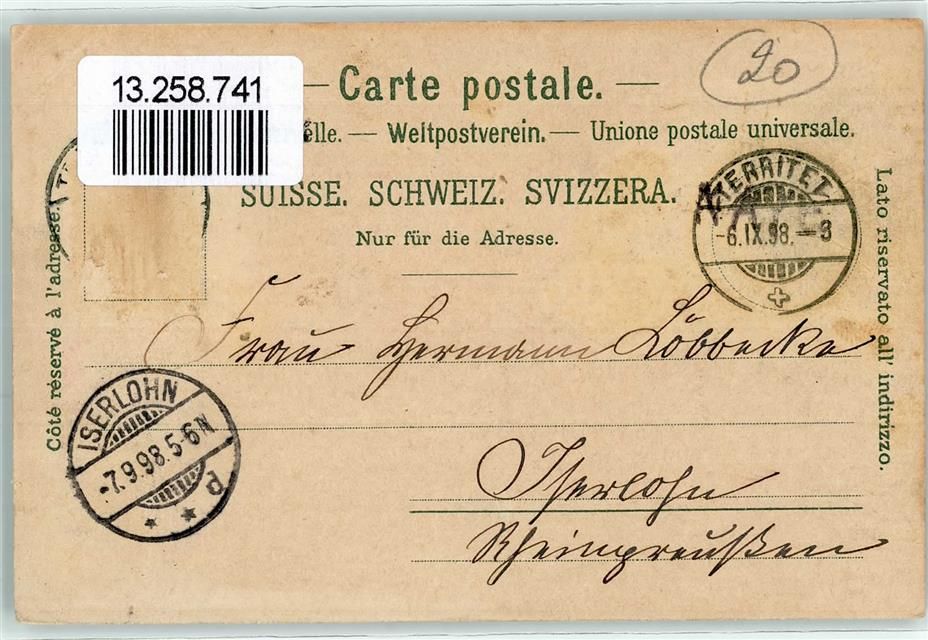 13.258.741
20
Carte postale.
lle. — Weltpostverein. — Unione postale universale.
SUISSE. SCHWEIZ. SVIZZERA.
Nur für die Adresse.
TERRITET
-6.IX.98.-3
Côté réservé à l'adresse.
Lato riservato all' indirizzo.
Frau Hermann Löbbecke
ISERLOHN
-7.9.98.5-6N
* * d
Iserlohn
Rheinpreußen